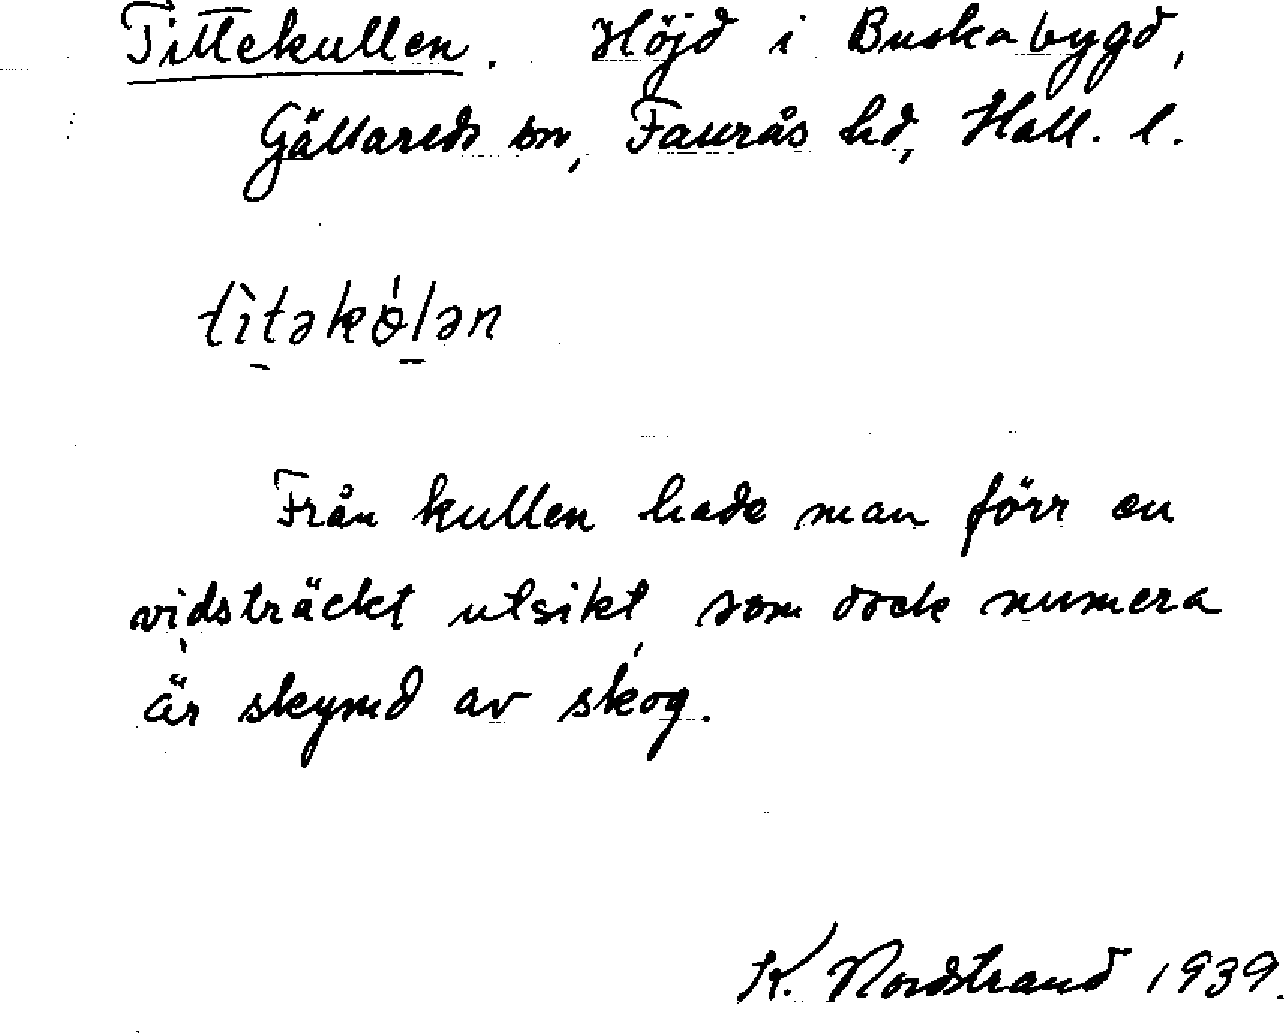 Tittekullen. Höjd i Buskabygd,
Gällareds sn, Faurås hd, Hall. l.
tìtəkɵ́lən
Från kullen hade man förr en
vidsträckt utsikt, som dock numera
är skymd av skog.
K. Nordstrand 1939.